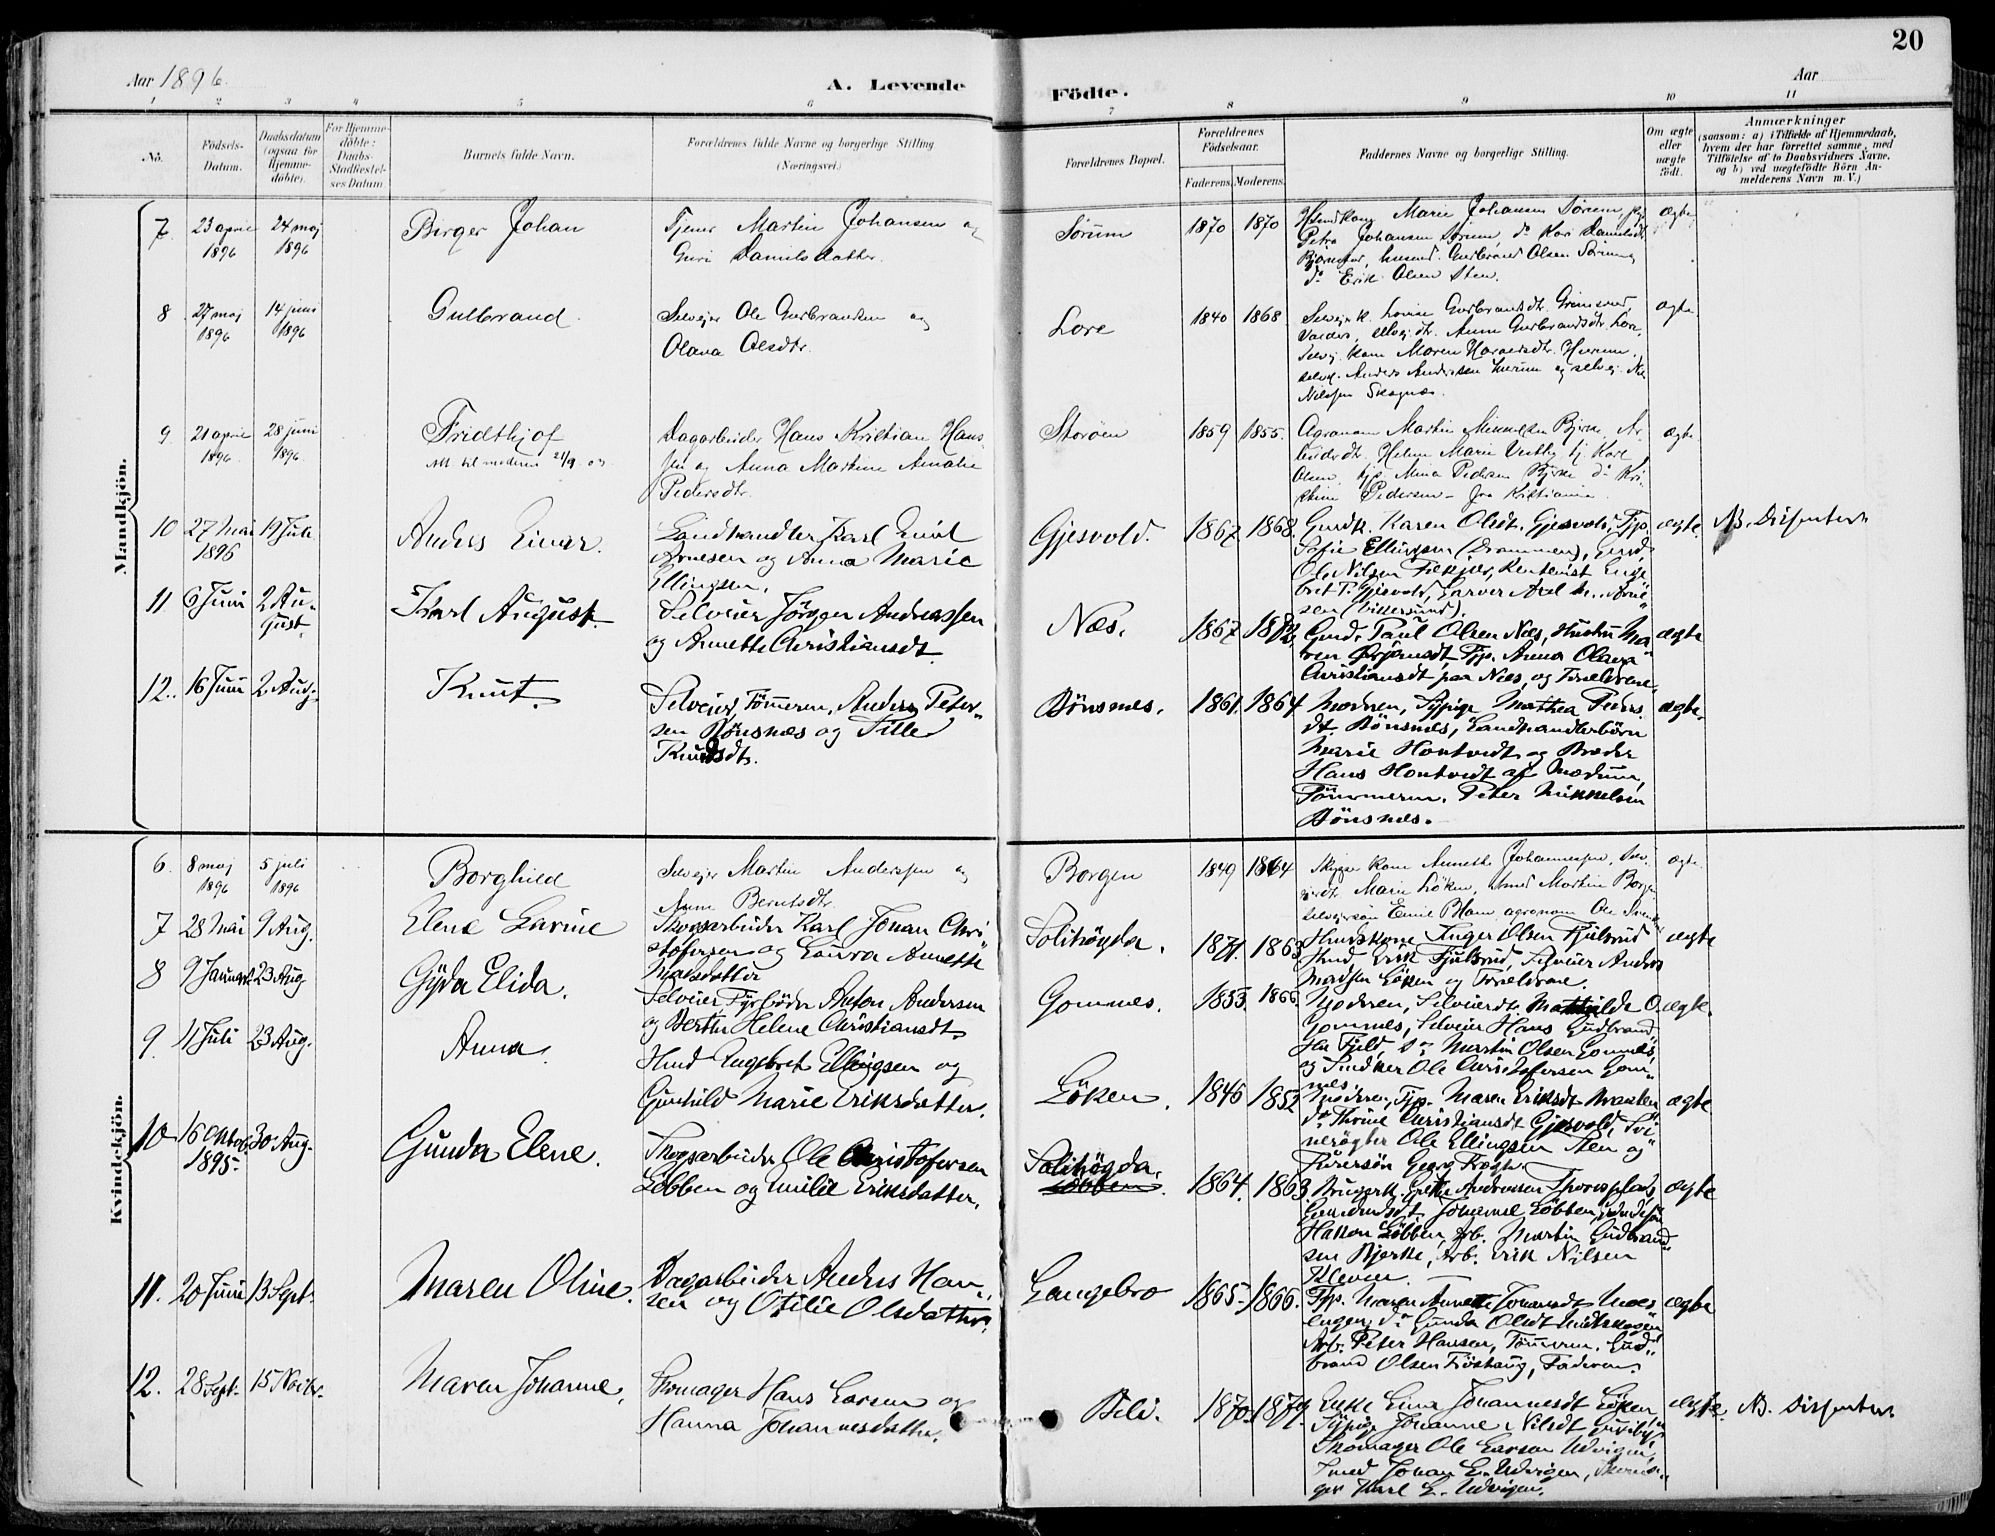 20
Aar 1896.
A. Levende Födte.
Aar
1 2 3 4 5 6 7 8 9 10 11
No.
Födsels-Datum.
Daabsdatum (ogsaa for Hjemmedöbte).
For Hjemmedöbte: Daabs-Stadfæstelses Datum
Barnets fulde Navn.
Forældrenes fulde Navne og borgerlige Stilling (Næringsvei.)
Forældrenes Bopæl.
Forældrenes Födselsaar.
Faderens. Moderens.
Faddernes Navne og borgerlige Stilling.
Om ægte eller uægte födt.
Anmærkninger
(saasom: a) i Tilfælde af Hjemmedaab,
hvem der har forrettet samme, med
Tilföielse af to Daabsvidners Navne,
og b) ved uægtefödte Börn Anmelderens Navn m. V.)
Mandkjön.
7 23 april 1896 24 maj 1896 Birger Johan
Tjener Martin Johansen og
Guri Danielsdatter.
Sörum 1870 1870
Petra Johansen Sörum, do Kari
Gulbrand Olsen Sörum,
do Erik Olsen Sten.
ægte
8 27 maj 1896 14 juni 1896 Gulbrand
Selvejer Ole Gulbrandsen og
Olava Olsdtr.
Lore 1840 1868
Anders Andersen Hurum og selvej.
Nilsen
ægte
9. 21 april 1896 28 juni 1896. Fridthjof
Att. til moderen 21/9
Dagarbeider Hans Kristian Hans-
sen og Anna Martine Amalie
Pedersdtr.
Storöen 1859 1855.
Agronom Martin Mikkelsen Bjerke, Ar-
beiderdtr. Helene Marie
Olsen, Mina Pedersen Bjerke do Kri-
stine Pedersen - fra Kristiania.
ægte
10 27 Mai 1896 19 Juli Anders Einar.
Landhandler Karl Emil
Arnesen og Anna Marie
Ellingsen.
Gjesvold. 1867 1868.
Gmdk. Karen Olsdt. Gjesvold, Pige
Sofie Ellingsen (Drammen), Gmd
Ole Nilsen
bret P. Gjesvold, Garver Axel
ægte NB. Dissenter
11 6 Juni 2 August. Karl August.
Selveier Jörgen Andreassen
og Annette Christiansdt.
Næs. 1867
Gmd. Paul Olsen Næs, Hustru Ma-
ren Örjansdt. Pige Anna Olava
Christiansdt paa Næs, og Forældrene.
ægte
12.. 16 Juni 2 Aug. Knut.
Selveier, Tömmerm. Anders Peter-
sen Bönsnæs og Tille
Knudsdt.
Bönsnes. 1861. 1864
Moderen, Sypige Mathea Peders
dt. Bönsnes, Landhandlerbörn
Marie Hontvedt og Broder
Hans Hontvedt af Modum,
Tömmerm. Peter Mikkelsen
Bönsnes.
ægte.
Kvindekjön.
6. 8 maj 1896 5 juli 1896 Borghild
Selvejer Martin Anderssen og
Anne Berntsdtr.
Borgen 1849 1864
Annette Johannessen,
Marie Löken, Martin Borgen
selvejersön Emil Blom, agronom Ole
ægte
7 28 Mai 9 Aug. Elene Larine
Skogsarbeider Karl Johan Chri-
stofersen og Laura Annette
Madsdatter
Solihögda. 1871. 1863
Huuskone Inger Olsen Fjulsrud
Hmd. Erik Fjulsrud, Selveier Anders
Madsen Löken og Forældrene.
ægte
8 9 Januar 23 Aug Gyda Elida.
Selveier Fyrböder Anton Andersen
og Berthe Helene Christiansdt.
Gomnes. 1853. 1866.
Moderen, Selveierdt. Mathilde O.
Gomnes, Selveier Hans Gudbrand-
sen Fjeld, do Martin Olsen Gomnes,
og Snedker Ole Christofersen Gom-
nes.
ægte.
9. 11 Juli 23 Aug. Anna.
Hmd Engebret Ellingsen og
Gunhild Marie Eriksdatter.
Löken. 1846 1852
Moderen, Pige. Maren Eriksdt. Braaten
do Thrine Christiansdt Gjesvold, Svi-
nerögter Ole Ellingsen Sten og
Georg
ægte
10 16 Oktob. 1895. 30 Aug. Gunda Elene.
Skogsarbeider Ole Christofersen
Löbben og Emilie Eriksdatter.
Solihögda.
Löbben.
1864. 1863.
Brugerk. Grethe Andersen
Johanne Löbben,
Hakon Löbben, Arb. Martin Gudbrand-
sen Bjerke, Arb. Erik Nilsen
Kleven.
ægte
11. 20 Juni 13 Sept. Maren Oline.
Dagarbeider Anders Han-
sen og Otilie Olsdatter.
Langebro 1865. 1866.
Pige. Maren Annette Johansdt Moes
engen, do Gunda Olsdt Midtskogen
Arb. Peter Hansen, Tömmerm. Gud-
brand Olsen Fröshaug, Faderen.
ægte
12. 28 Sept. 15 Novbr. Maren Johanne.
Skomager Hans Larsen og
Hanna Johannesdatter.
Bili. 1870. 1874.
Enke Lina Johannesdt Löken
Sypige Johanne Nilsdt
Skomager Ole Larsen Udvigen,
Smed Johan L. Udvigen, Skoma-
ger Karl L. Udvigen.
ægte. NB. Dissenter.